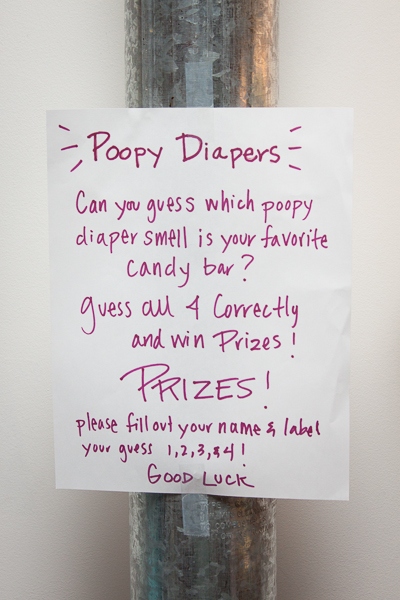 Poopy Diapers
Can you guess which poopy
diaper smell is your favorite
candy bar?
guess all 4 Correctly
and win Prizes!
PRIZES!
please fill out your name & label
your guess 1,2,3,&4!
GOOD LUCK